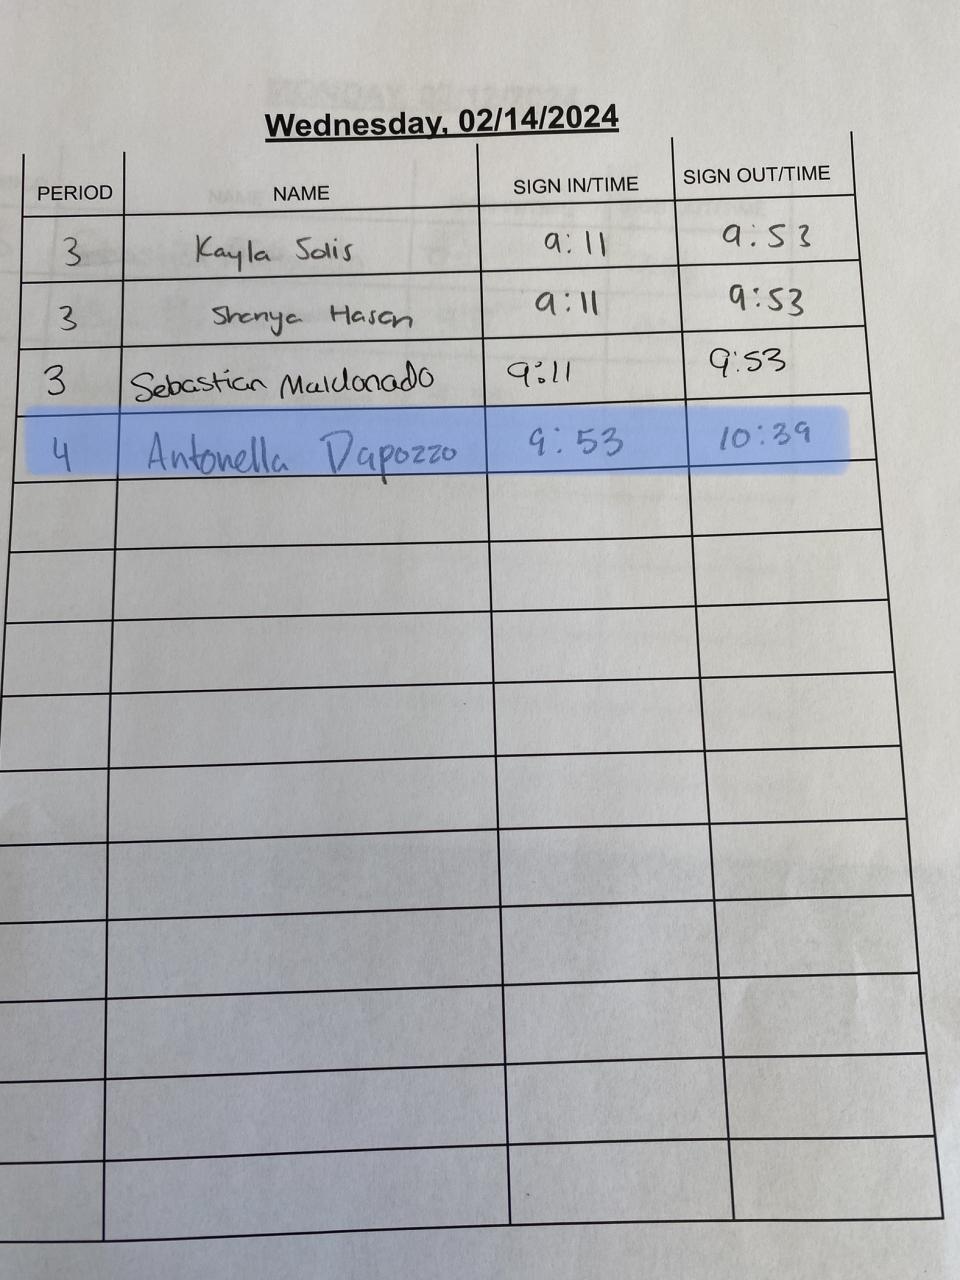 Wednesday, 02/14/2024
PERIOD NAME SIGN IN/TIME SIGN OUT/TIME
3 Kayla Solis 9:11 9:53
3 Shanya Hasan 9:11 9:53
3 Sebastian Maldonado 9:11 9:53
4 Antonella Dapozzo 9:53 10:39